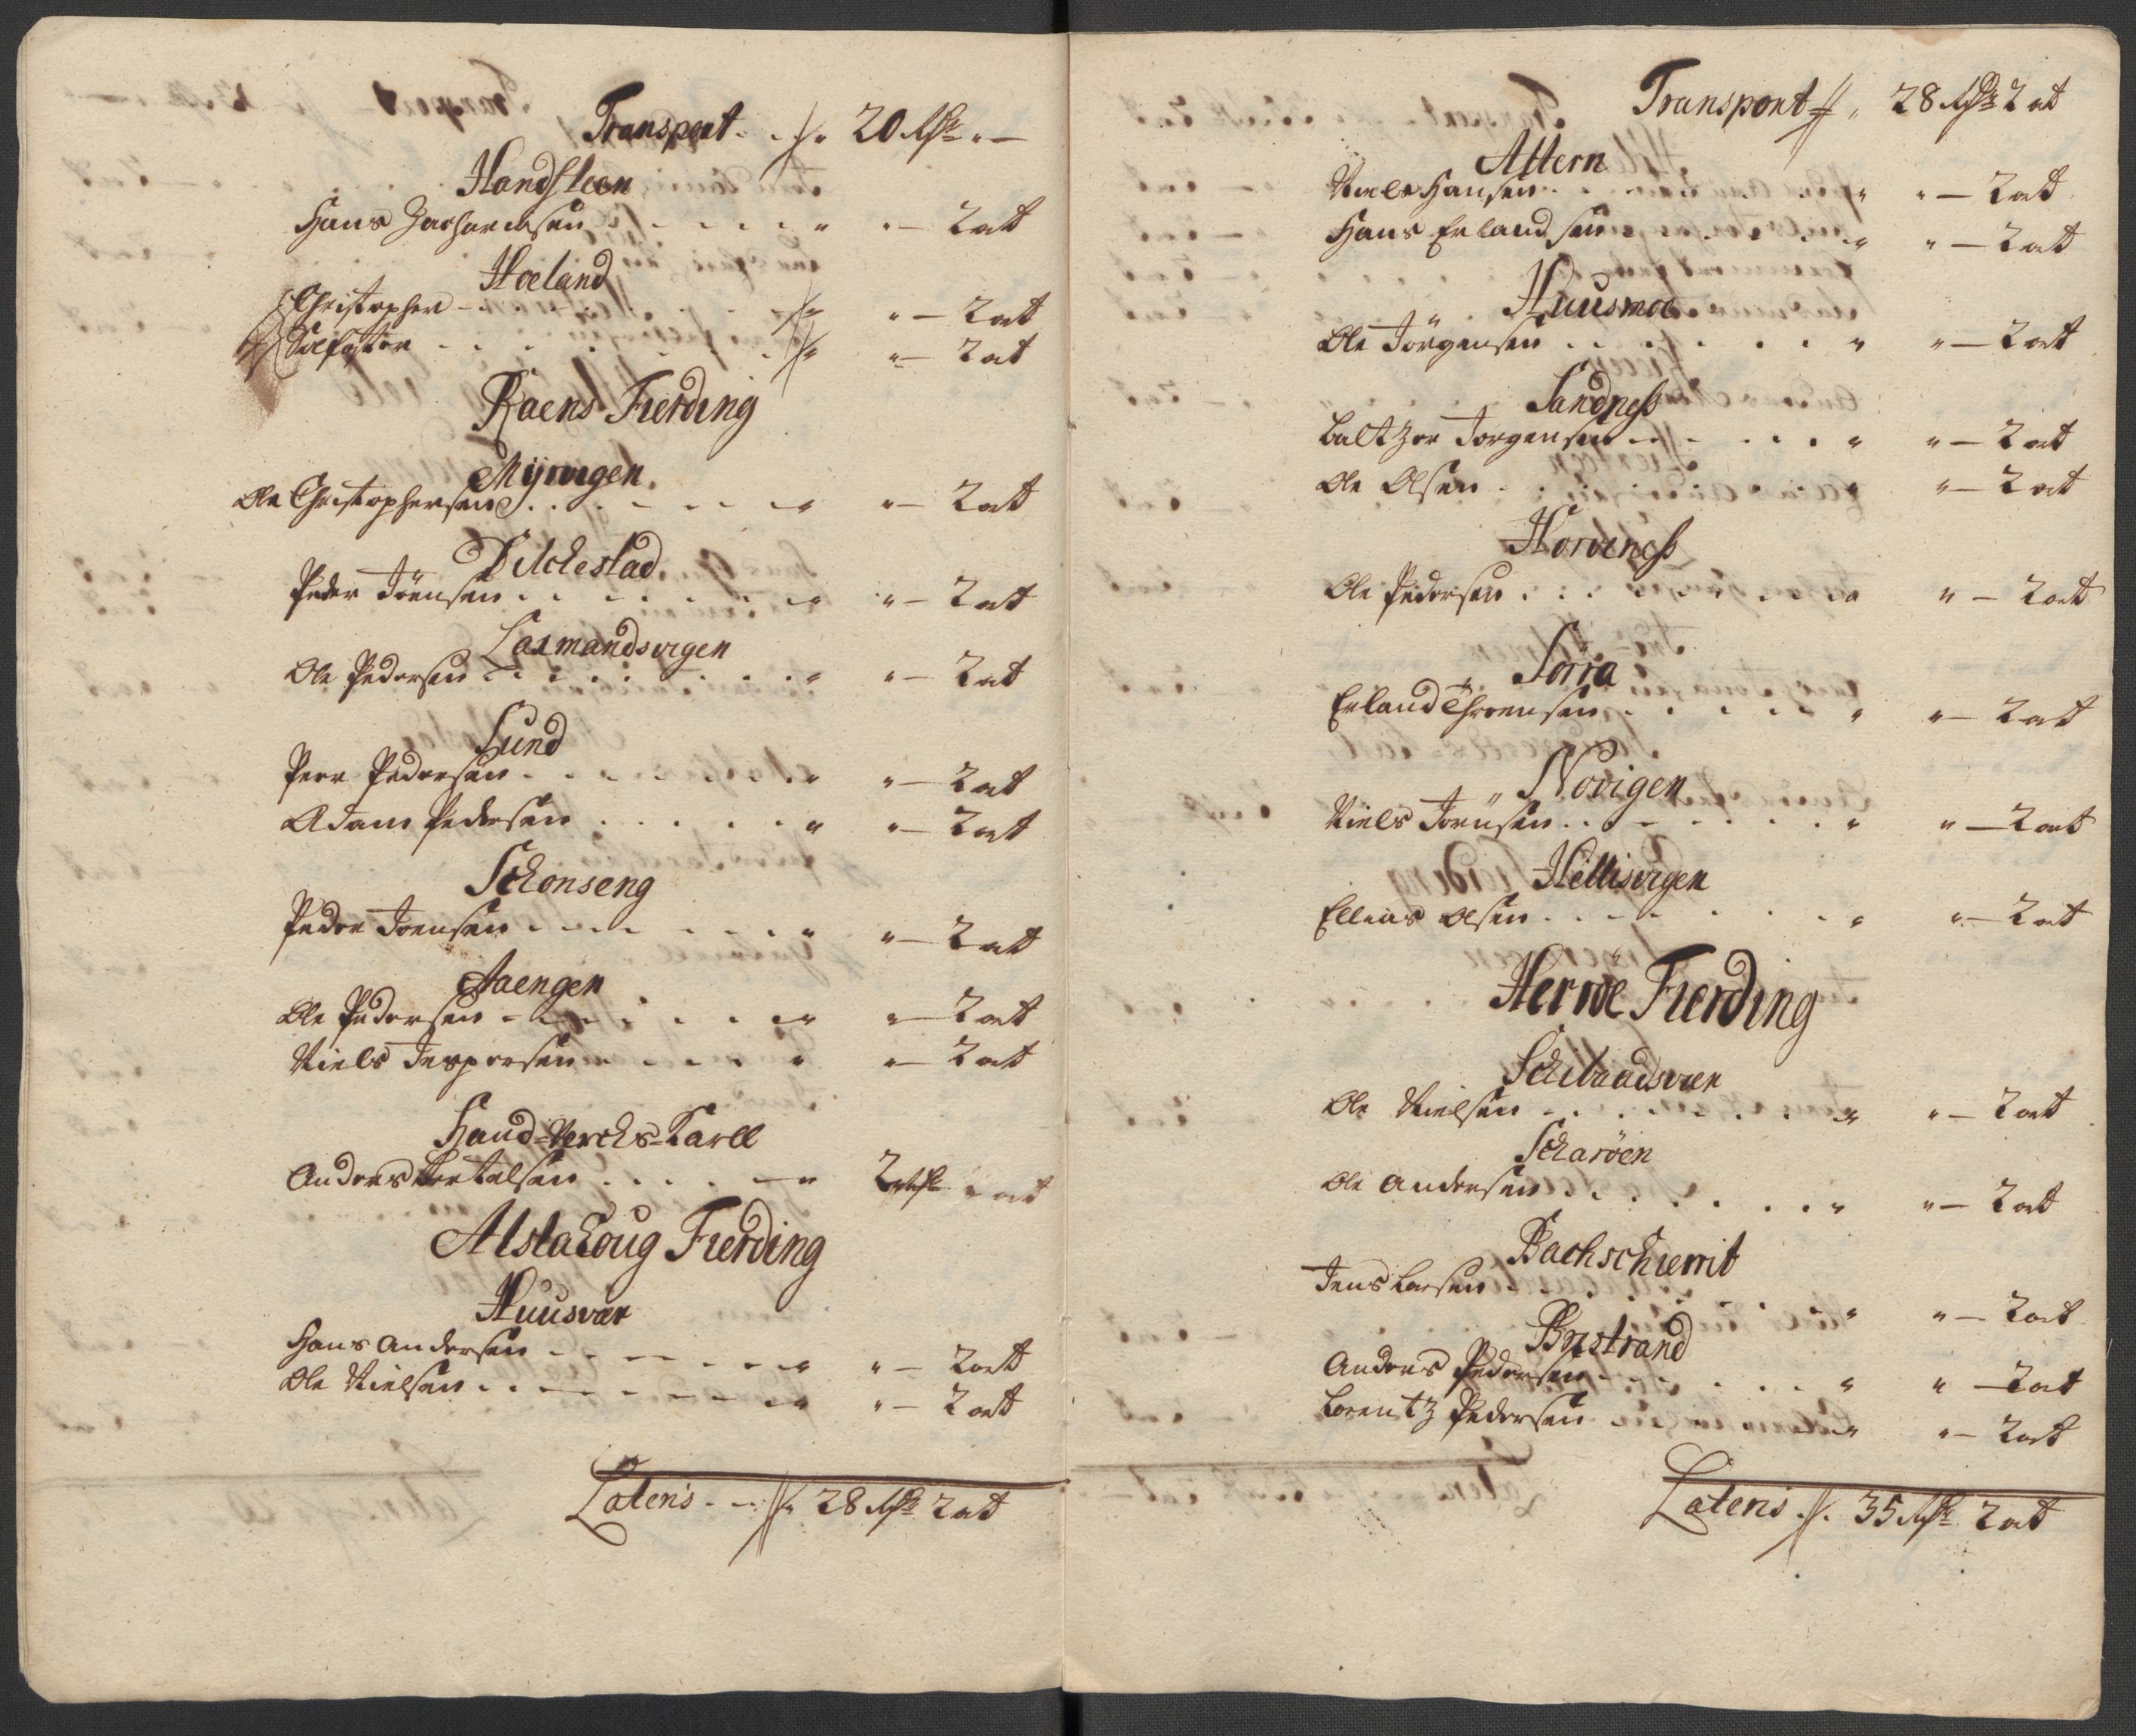 Transport . . 20 Rdr " —
Handsteen
Hans Zachariasen " " — 2 ort
Hæland
Christopher " " — 2 ort
Sølfæster " " — 2 ort
Raens Fierding
Mijrvigen
Ole Christophersen " " — 2 ort
Dilchestad
Peder Jönsen " " — 2 ort
Laxmandsvigen
Ole Pedersen " " — 2 ort
Lund
Peer Pedersen " " — 2 ort
Adam Pedersen " " — 2 ort
Schonseng
Peder Joensen " " — 2 ort
Aaengen
Ole Pedersen " " — 2 ort
Niels Jespersen " " — 2 ort
Hand-Verchs-Karll
Anders Bertelsen " 2 ort
Alstahoug Fierding
Huusvær
Hans Andersen " " — 2 ort
Ole Nielsen " " — 2 ort
Lateris . . 28 Rdr 2 ort
Transport 28 Rdr 2 ort
Altern
Niels Hansen " " — 2 ort
Hans Erlandsen " " — 2 ort
Huusmoe
Ole Jörgensen " " — 2 ort
Sandness
Baltzer Jorgensen " " — 2 ort
Ole Olsen " " — 2 ort
Horveness
Ole Pedersen " " — 2 ort
Sörra
Erland Thoensen " " — 2 ort
Novigen
Niels Jonsen " " — 2 ort
Hellisvigen
Ellias Olsen " " — 2 ort
Herröe Fierding
Schibaadsvær
Ole Nielsen " " — 2 ort
Scharöen
Ole Andersen " " — 2 ort
Bachschierrit
Jens Larsen " " — 2 ort
Brestrand
Anders Pedersen " " — 2 ort
Lorentz Pedersen " " — 2 ort
Lateris 35 Rdr 2 ort